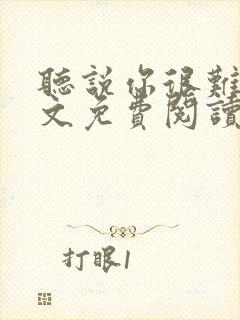 聽說你很難
文免費閱讀
打眼1